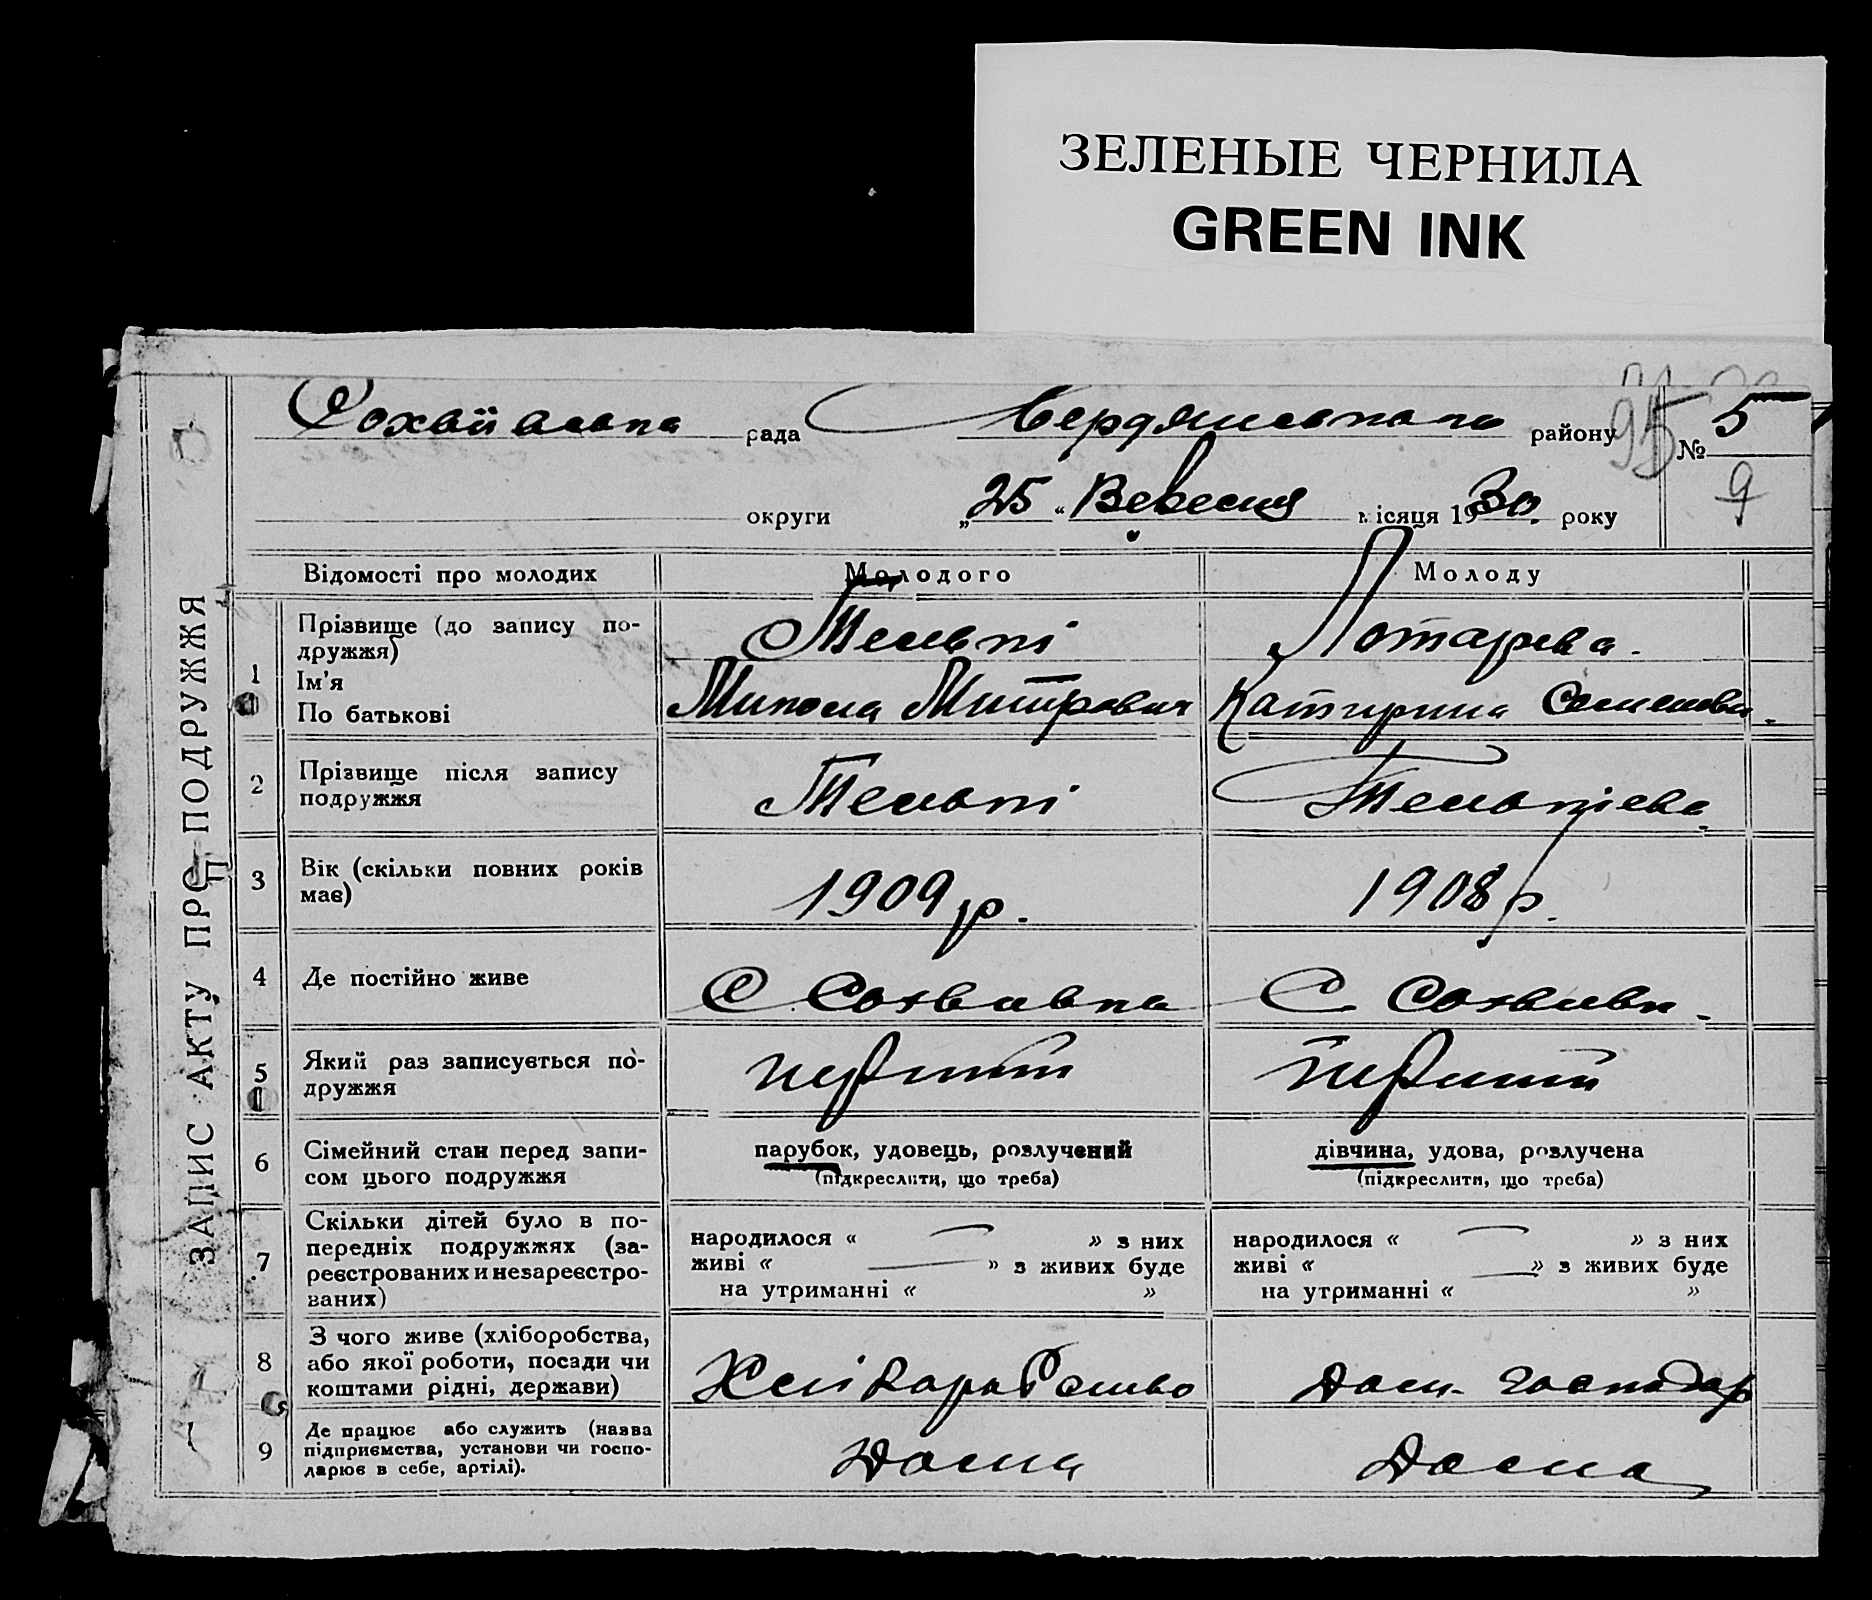 ЗЕЛЕНЫЕ ЧЕРНИЛА
GREEN INK
рада Бердянського району № 5
95
9
округи „25“ Вересня місяця 1930 року
ЗАПИС АКТУ ПРО ПОДРУЖЖЯ
Відомості про молодих Молодого Молоду
1 Прізвище (до запису по-
дружжя)
Ім'я
По батькові
Микола Митрович Катирина
2 Прізвище після запису
подружжя
3 Вік (скільки повних років
має)
1909 р. 1908 р.
4 Де постійно живе
С. С.
5 Який раз записується по-
дружжя
перший перший
6 Сімейний стан перед запи-
сом цього подружжя
парубок, удовець, розлучений
(підкреслити, що треба)
дівчина, удова, розлучена
(підкреслити, що треба)
7 Скільки дітей було в по-
передніх подружжях (за-
реєстрованих и незареєстро-
ваних)
народилося « — » з них
живі « — » з живих буде
на утриманні « »
народилося « — » з них
живі « — » з живих буде
на утриманні « »
8 З чого живе (хліборобства,
або якої роботи, посади чи
коштами рідні, держави)
Хліборобство Дом. господар
9 Де працює або служить (назва
підприємства, установи чи госпо-
дарює в себе, артілі).
Дома Дома